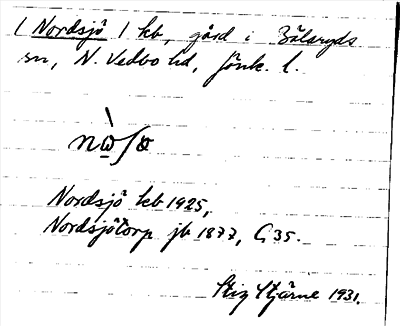 ( Nordsjö ) kb, gård i Bälaryds
sn, N. Vedbo hd, Jönk. l.
nὼʃɷ
Nordsjö kb 1925,
Nordsjötorp jb 1877, G 35.
Stig Stjärne 1931.